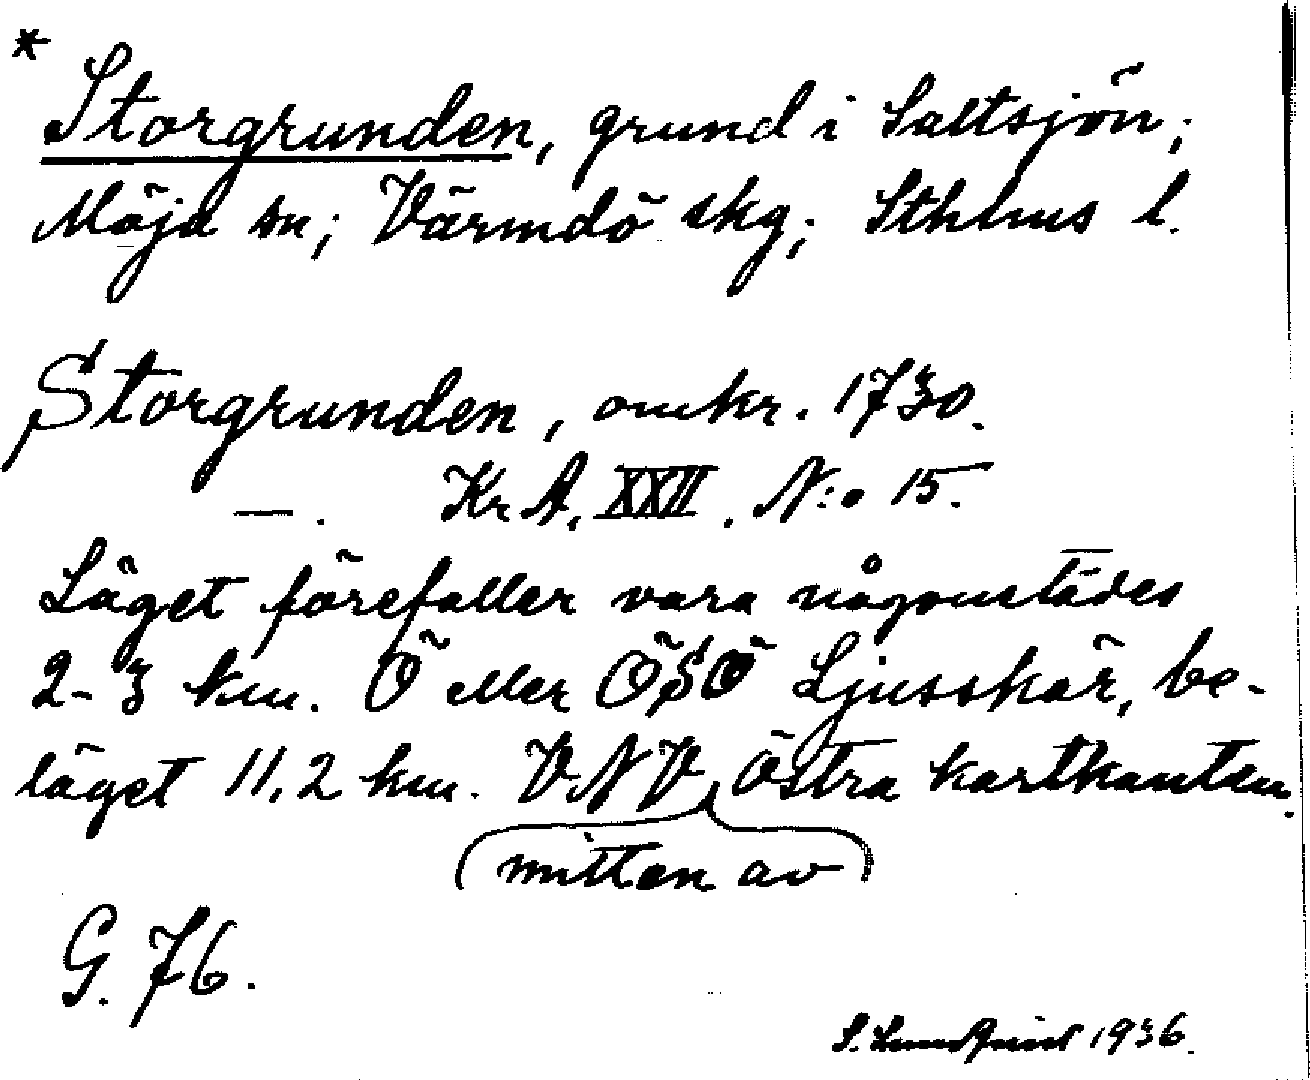 *
Storgrunden, grund i Saltsjön;
Möja sn; Värmdö skg; Sthlms l.
Storgrunden, omkr. 1730.
—. Kr A, XXII. N:o 15.
Läget förefaller vara någonstädes
2-3 km. Ö eller ÖSÖ Ljusskär, be-
läget 11,2 km. VNV östra kartkanten.
mitten av
G. 76.
S. Lundquist 1936.